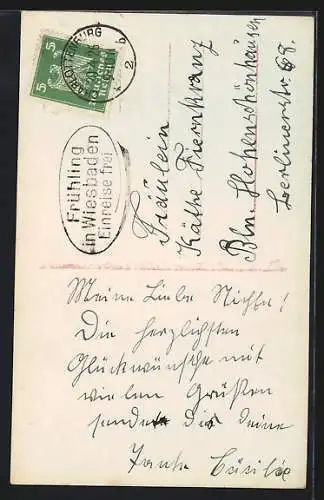 5 5
CHARLOTTENBURG
2 b
Frühling
in Wiesbaden
Einreise frei
Fräulein
Käthe
Bln. Hohenschönhausen
Berlinerstr. 68.
Meine Liebe Nichte!
Die herzlichsten
Glückwünsche mit
vielen Grüßen
sendet dir deine
Tante